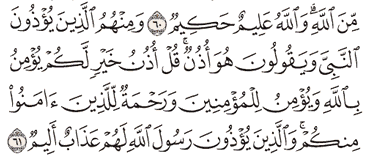 مِّنَ ٱللَّهِ ۗ وَٱللَّهُ عَلِيمٌ حَكِيمٌ ٦٠ وَمِنْهُمُ ٱلَّذِينَ يُؤْذُونَ
ٱلنَّبِىَّ وَيَقُولُونَ هُوَ أُذُنٌ ۚ قُلْ أُذُنُ خَيْرٍ لَّكُمْ يُؤْمِنُ
بِٱللَّهِ وَيُؤْمِنُ لِلْمُؤْمِنِينَ وَرَحْمَةٌ لِّلَّذِينَ ءَامَنُوا۟
مِنكُمْ ۚ وَٱلَّذِينَ يُؤْذُونَ رَسُولَ ٱللَّهِ لَهُمْ عَذَابٌ أَلِيمٌ ٦١